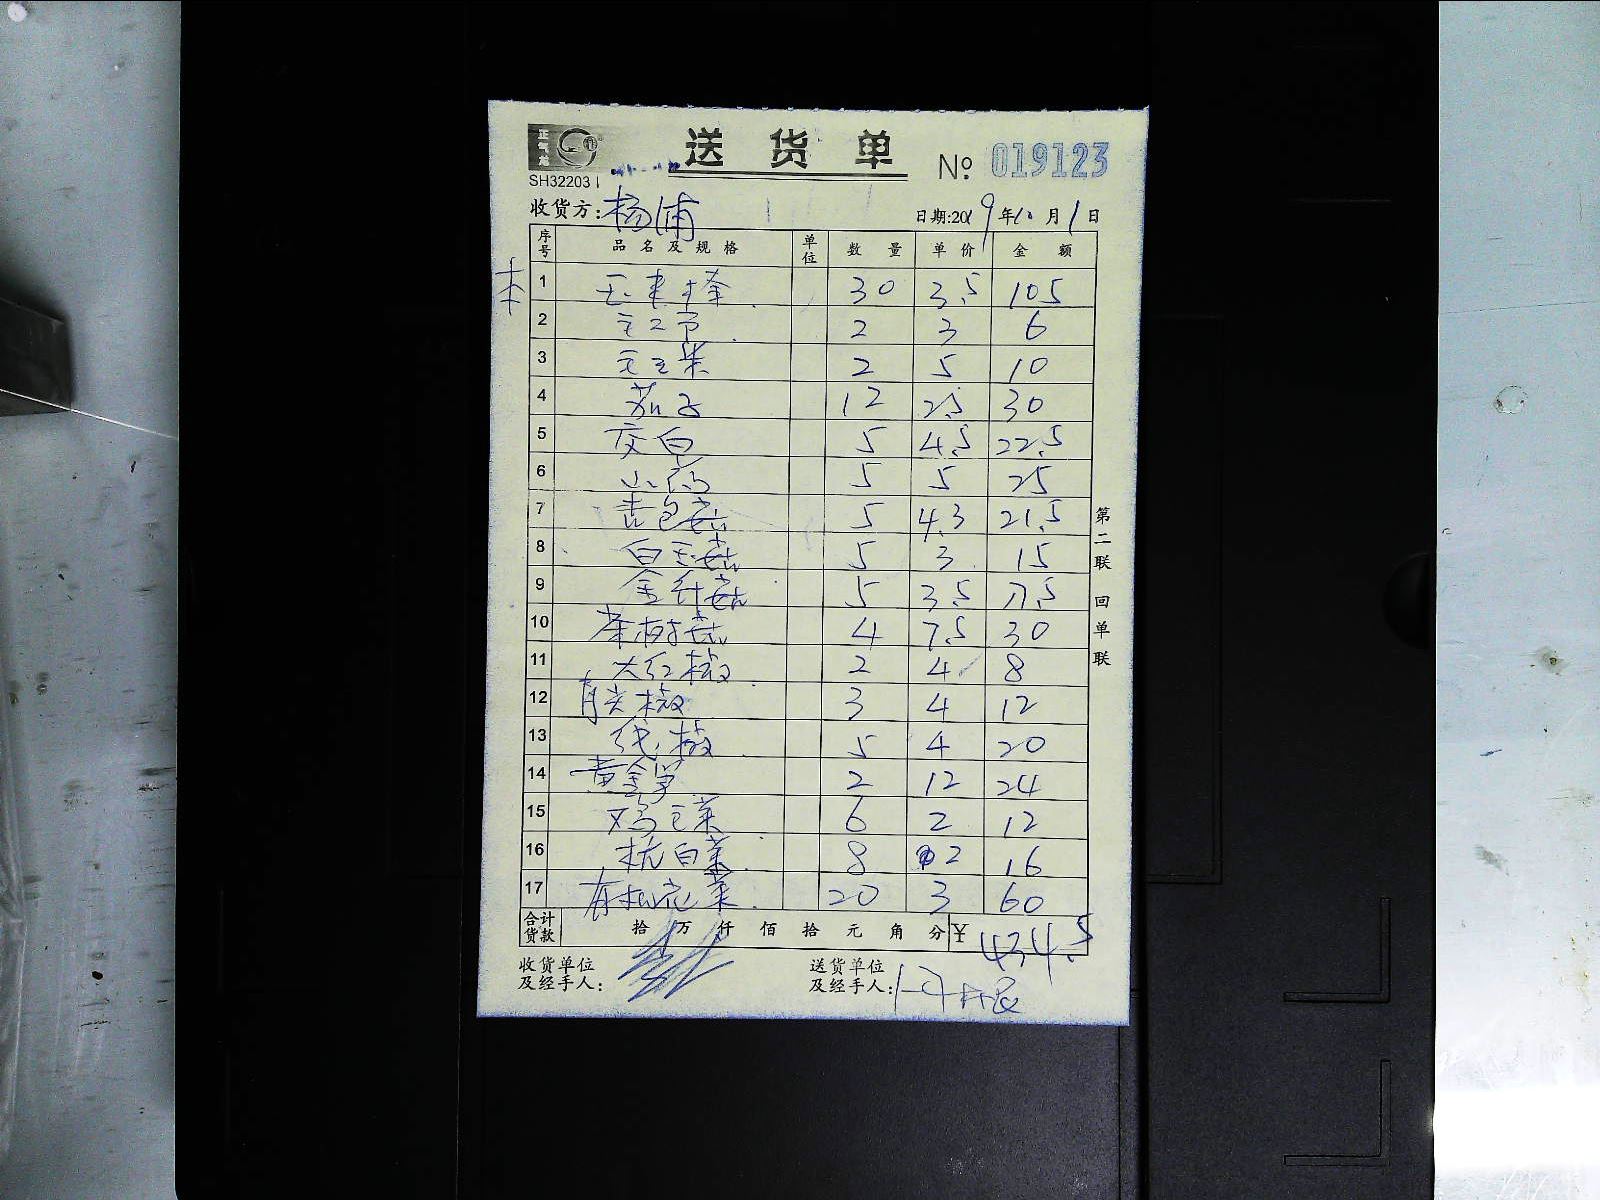 正气龙
送 货 单
№ 019123
SH32203
收货方: 杨浦
日期:2019年10月1日
序号 品名及规格 单位 数量 单价 金额
1 30 3.5 105
2 2 3 6
3 2 5 10
4 茄子 12 2.5 30
5 交白 5 4.5 22.5
6 山药 5 5 25
7 杏包菇 5 4.3 21.5
8 白玉菇 5 3 15
9 金针菇 5 3.5 17.5
10 茶树菇 4 7.5 30
11 大红椒 2 4 8
12 青尖椒 3 4 12
13 线椒 5 4 20
14 黄金笋 2 12 24
15 鸡毛菜 6 2 12
16 杭白菜 8 2 16
17 有机花菜 20 3 60
合计货款 拾 万 仟 佰 拾 元 角 分 ¥ 434.5
收货单位及经手人:
送货单位及经手人:
第二联 回单联